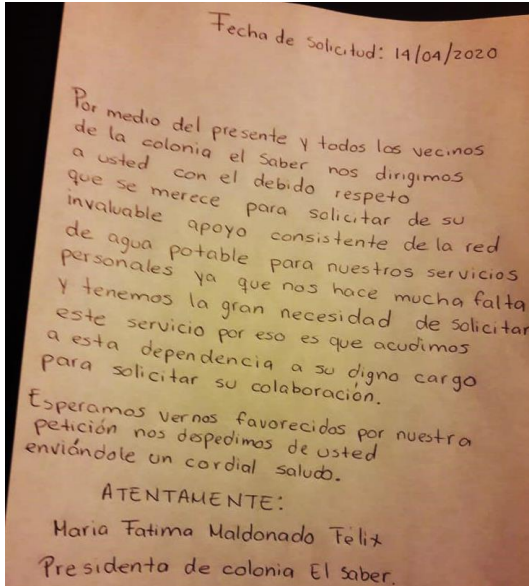 Fecha de solicitud: 14/04/2020
Por medio del presente y todos los vecinos
de la colonia el saber nos dirigimos
a usted con el debido respeto
que se merece para solicitar de su
invaluable apoyo consistente de la red
de agua potable para nuestros servicios
personales ya que nos hace mucha falta
y tenemos la gran necesidad de solicitar
este servicio por eso es que acudimos
a esta dependencia a su digno cargo
para solicitar su colaboración.
Esperamos vernos favorecidos por nuestra
petición nos despedimos de usted
enviándole un cordial saludo.
ATENTAMENTE:
Maria Fatima Maldonado Felix
Presidenta de colonia El saber.